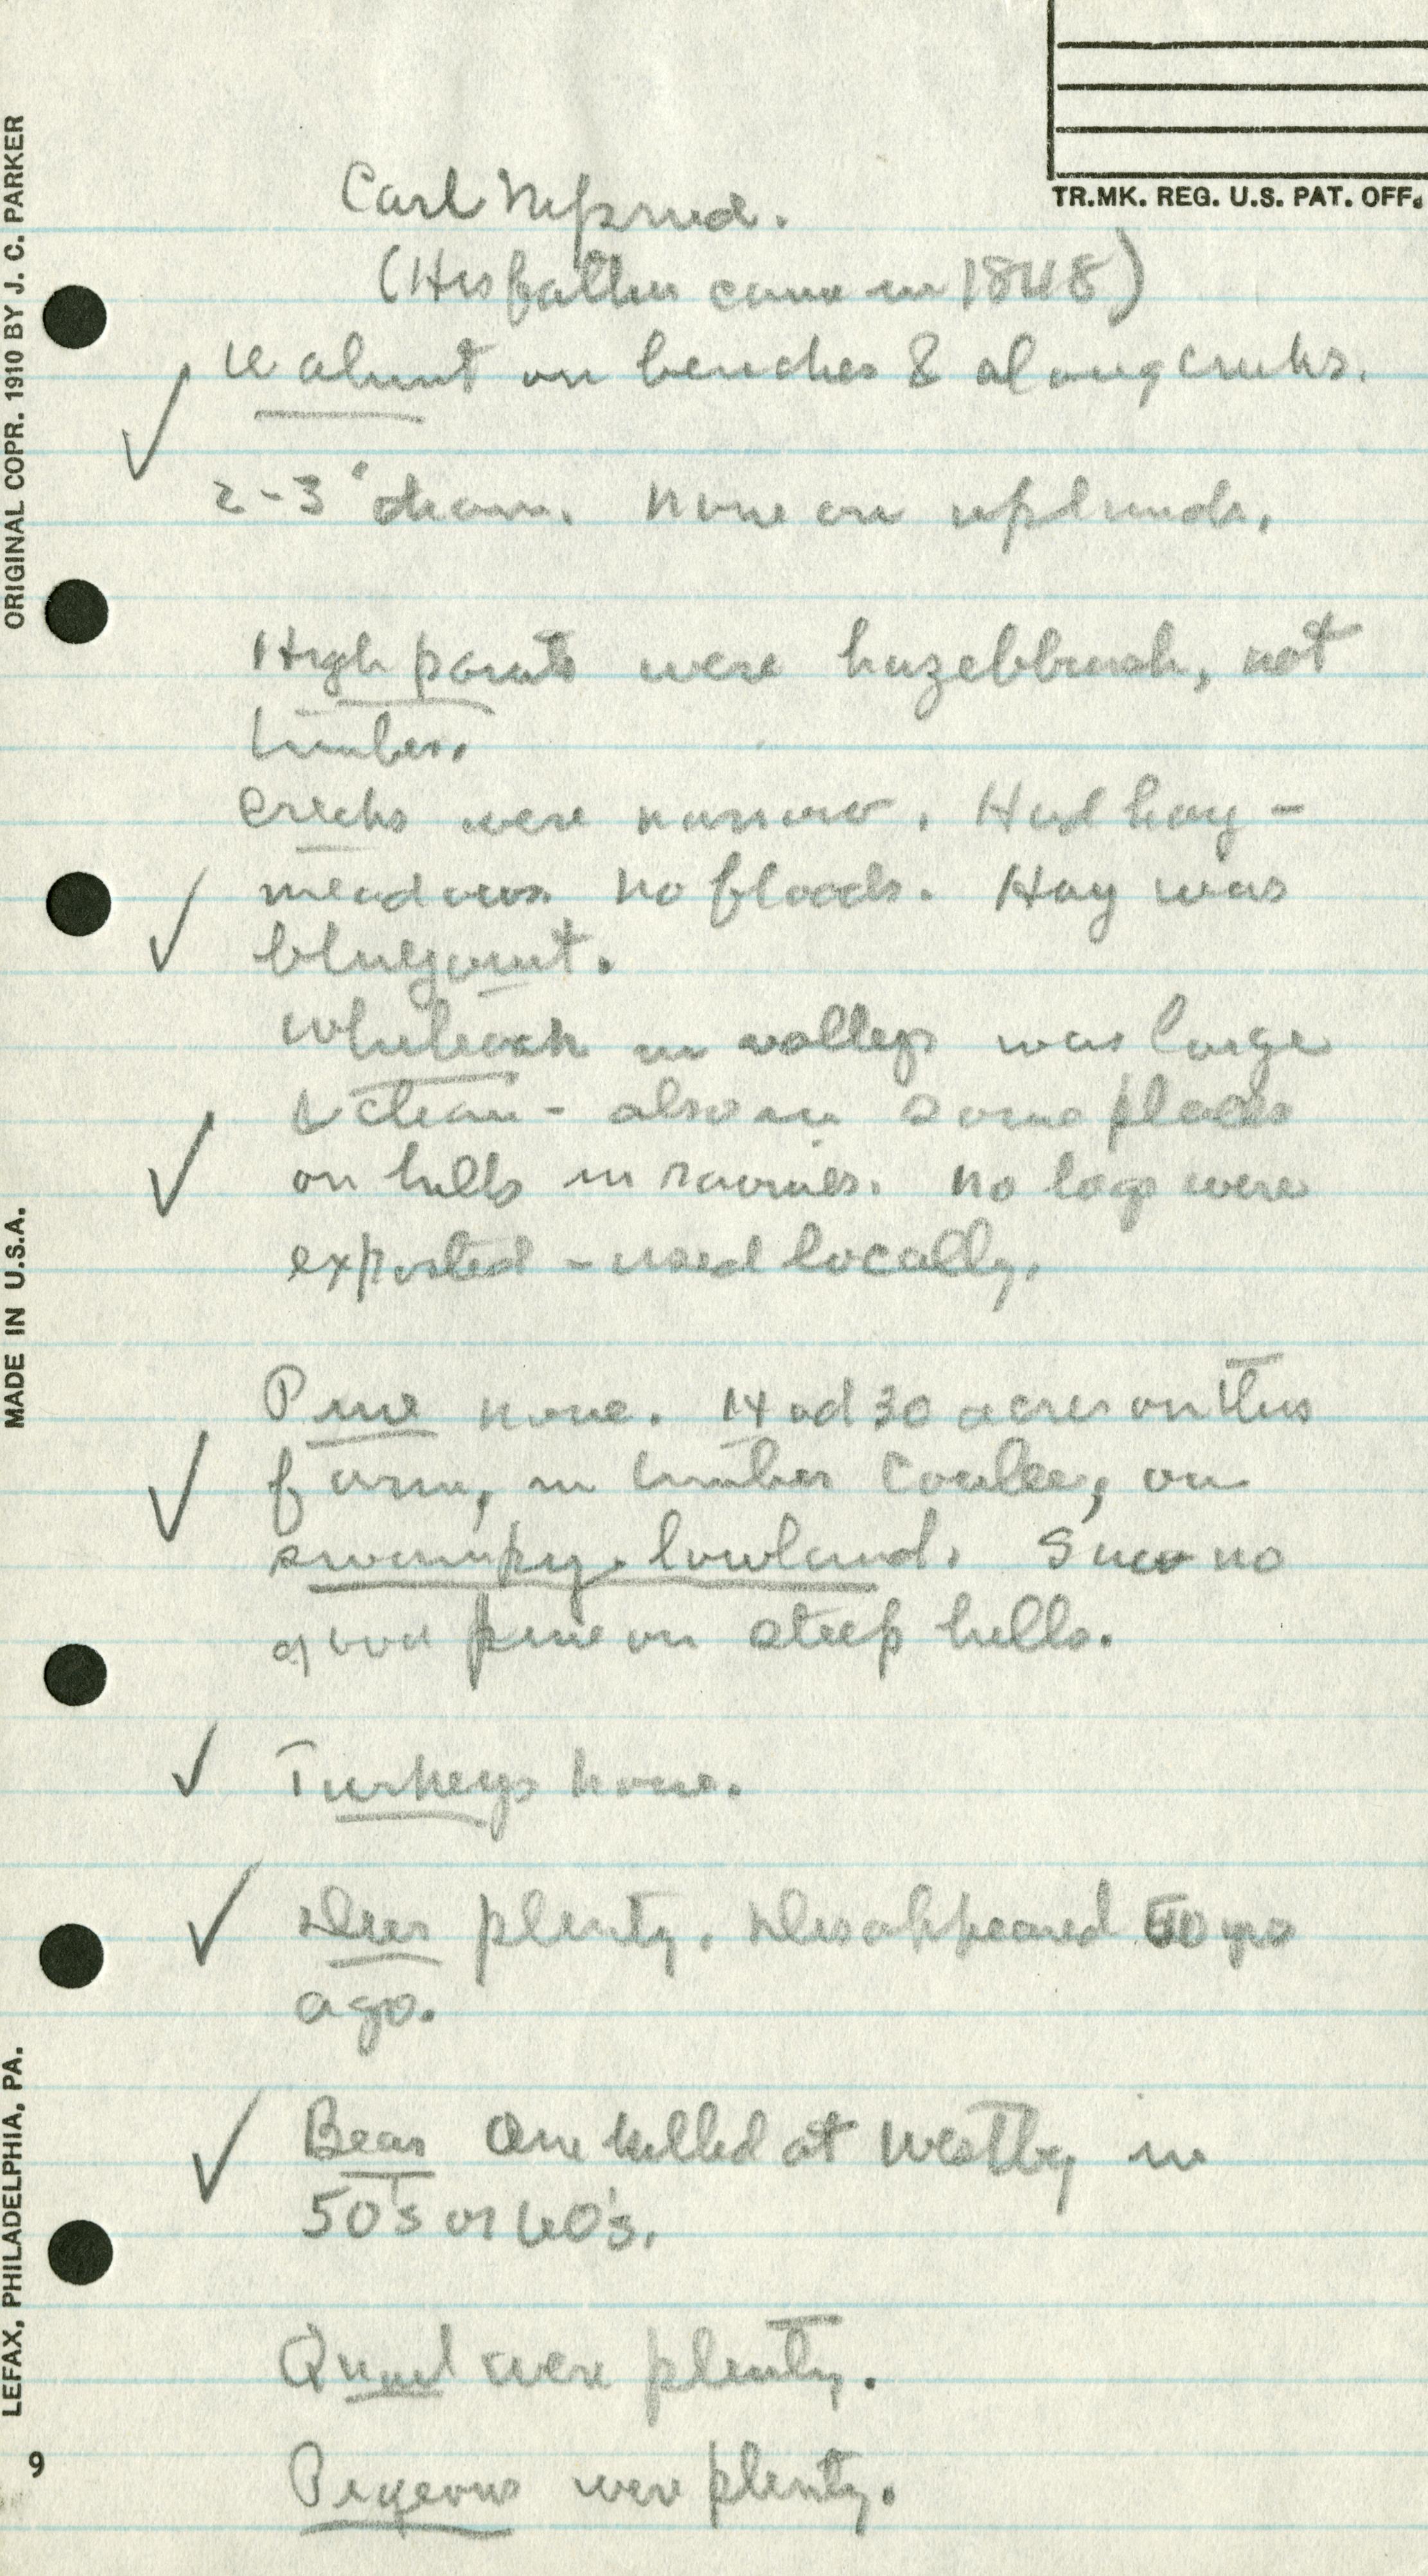 TR.MK. REG. U.S. PAT. OFF.
ORIGINAL COPR. 1910 BY J. C. PARKER
MADE IN U.S.A.
LEFAX, PHILADELPHIA, PA.
9
Carl Neprud.
(His father came in 1848)
Walnut on benches & along creeks.
2-3' diam. None on uplands.
High points were hazelbrush, not
timber.
Creeks were narrow. Had hay-
meadows no floods. Hay was
bluejoint.
White oak in valleys was large
& clean - also in some places
on hills in ravines. No logs were
exported - used locally.
Pine none. 14 ad 30 acres on this
farm, in timber Coulee, on
swampy lowland. Saw no
good pine on steep hills.
Turkeys none.
Deer plenty. Disappeared 50 yrs
ago.
Bear One killed at Westby in
50's or 60's.
Quail were plenty.
Pigeons were plenty.